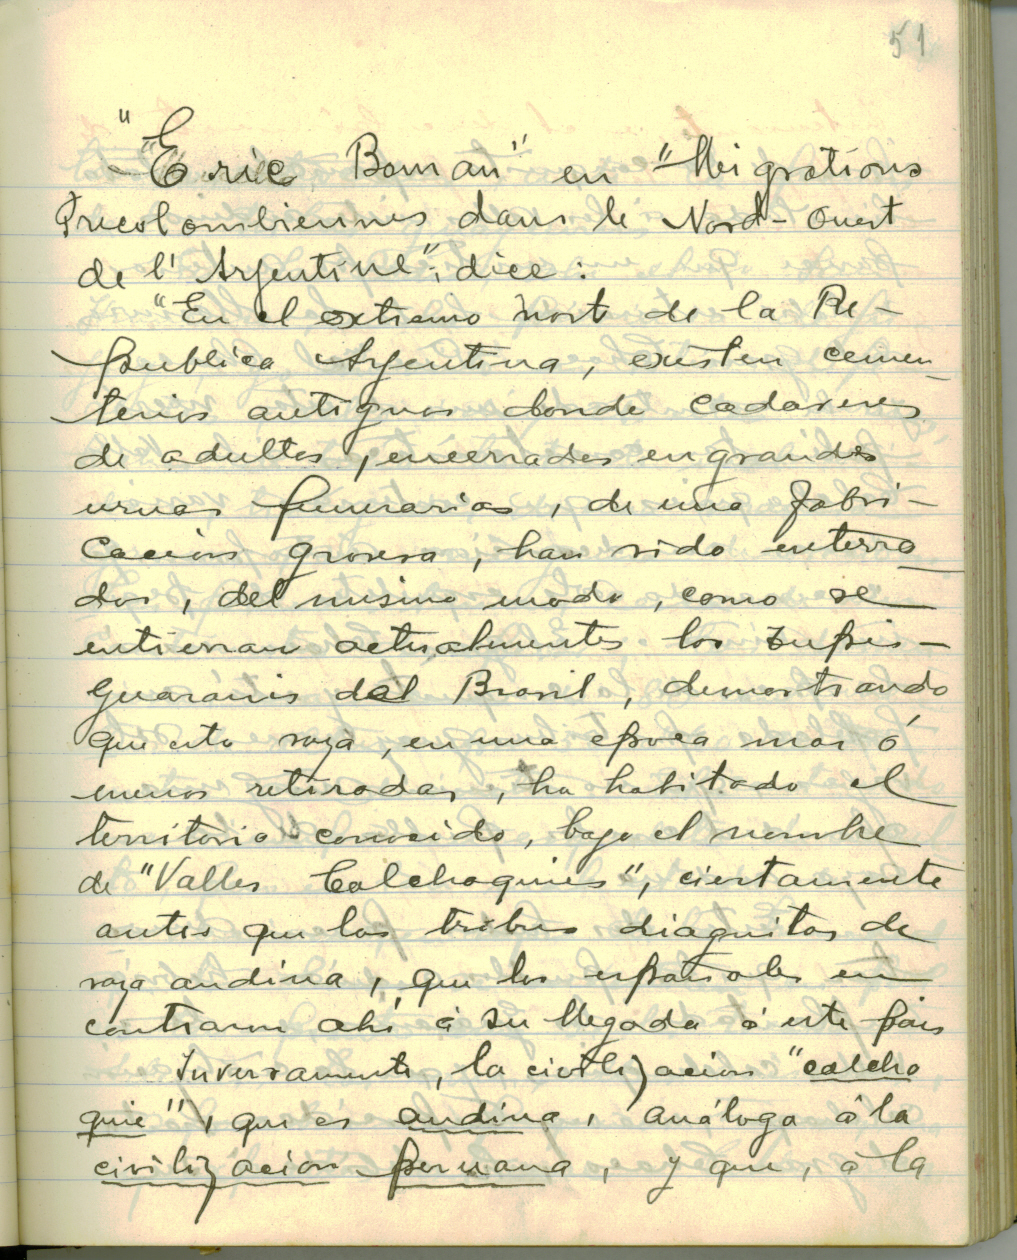 51
"Eric Boman" en "Migrations
Precolombiennes dans le Nord-Ouest
de l'Argentine"; dice:
"En el extremo norte de la Re-
publica Argentina, existen cemen-
terios antiguos donde cadaveres
de adultos, encerrados en grandes
urnas funerarias, de una fabri-
cacion grosera, han sido enterra-
dos, del mismo modo, como se
entierran actualmentes los Tupis-
Guaranis del Brasil, demostrando
que esta raza, en una epoca mas ó
menos retiradas, ha habitado el
territorio conocido, bajo el nombre
de "Valles Calchaquies", ciertamente
antes que las tribus diaguitas de
raza andina, que los españoles en
contraron ahí á su llegada á este país
Inversamente, la civilización "calcha
quie", que es andina, análoga á la
civilizacion peruana, y que, á la